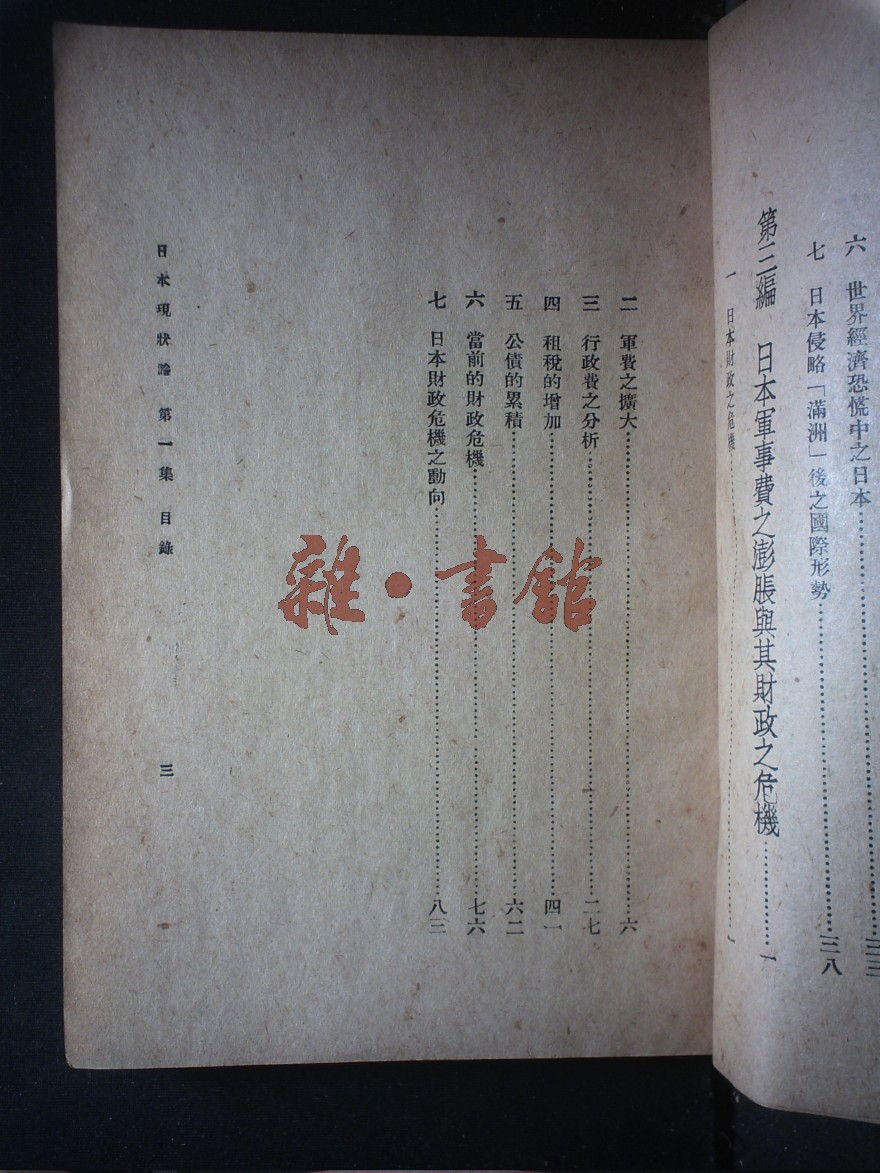 六　世界經濟恐慌中之日本……三三
七　日本侵略「滿洲」後之國際形勢……三八
第三編　日本軍事費之澎脹與其財政之危機……一
一　日本財政之危機……一
二　軍費之擴大……六
三　行政費之分析……二七
四　租稅的增加……四一
五　公債的累積……六二
六　當前的財政危機……七六
七　日本財政危機之動向……八三
日本現狀論　第一集　目錄　三
雜·書館